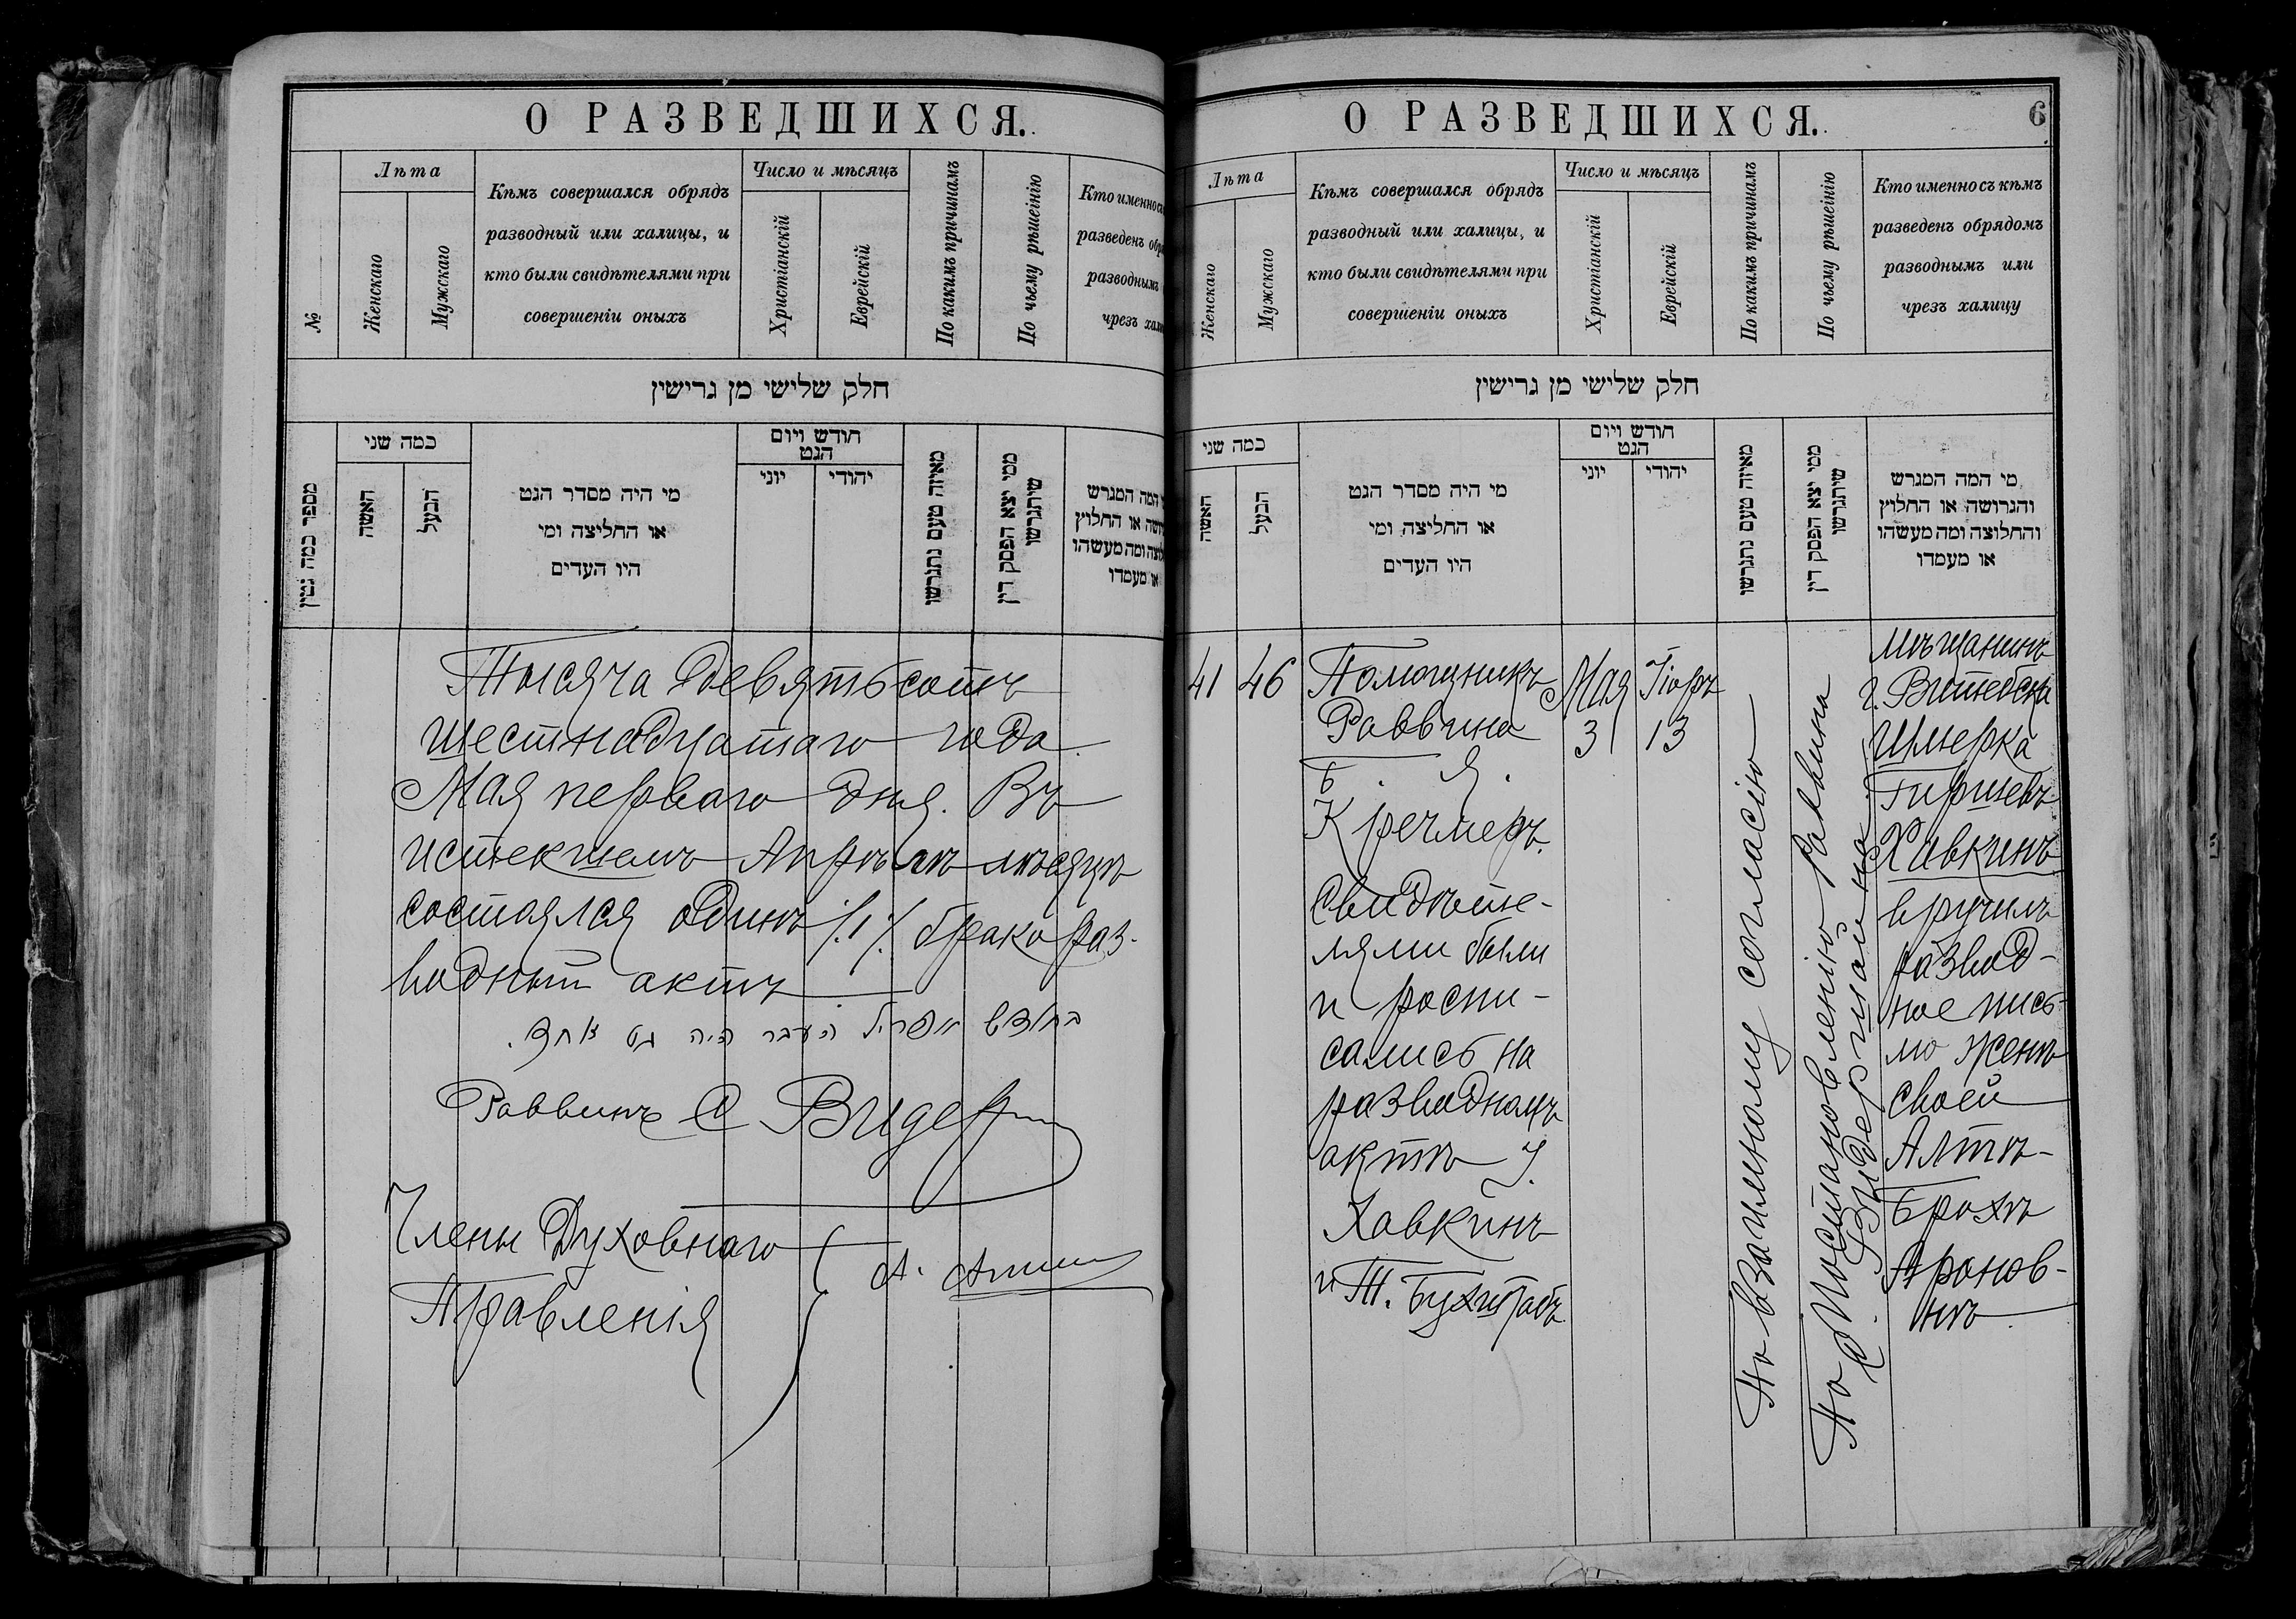 О РАЗВЕДШИХСЯ.
№
Лѣта
Женскаго
Мужскаго
Кѣмъ совершался обрядъ
разводный или халицы, и
кто были свидѣтелями при
совершеніи оныхъ
Число и мѣсяцъ
Христіанскій
Еврейскій
По какимъ причинамъ
По чьему рѣшеінію
Кто именно съ
разведенъ обр
разводнымъ
чрезъ хал
חלק שלישי מן גרישין
מספר כמה גטין
כמה שני
האשה
הבעל
מי היה מסדר הגט
או החליצה ומי
היו העדים
חודש ויום
הגט
יוני
יהודי
מאיזה טעם נתגרשו
ממי יצא הפסק דין
שיתגרשו
המה המגרש
או החלוץ
ומה מעשהו
או מעמדו
Тысяча девятьсотъ
шестнадцатаго года
Мая перваго дня. Въ
истекшемъ Апрѣлѣ мѣсяцѣ
состоялся одинъ /.1/. бракораз-
водный актъ
בחודש אפריל העבר היה גט אחד.
Раввинъ С Видер
Члены Духовнаго
Правленія
А.
О РАЗВЕДШИХСЯ.
6
Лѣта
Женскаго
Мужскаго
Кѣмъ совершался обрядъ
разводный или халицы, и
кто были свидѣтелями при
совершеніи оныхъ
Число и мѣсяцъ
Христіанскій
Еврейскій
По какимъ причинамъ
По чьему рѣшеінію
Кто именно съ кѣмъ
разведенъ обрядомъ
разводнымъ или
чрезъ халицу
חלק שלישי מן גרישין
כמה שני
האשה
הבעל
מי היה מסדר הגט
או החליצה ומי
היו העדים
חודש ויום
הגט
יוני
יהודי
מאיזה טעם נתגרשו
ממי יצא הפסק דין
שיתגרשו
מי המה המגרש
והגרושה או החלוץ
והחלוצה ומה מעשהו
או מעמדו
41
46
Помощникъ
Раввина
Б. Я.
Кречмеръ.
Свидѣте-
лями были
и роспи-
сались на
разводномъ
актѣ У.
Хавкинъ
и Т. Бухштабъ
Мая
3
Іюръ
13
По взаимному согласію
По Постановленію Раввина
С. Видермана
Мѣщанинъ
г. Витебска
Шмерка
Гиршевъ
Хавкинъ
вручилъ
развод-
ное пись-
мо женѣ
своей
Алтѣ-
Брохѣ
Аронов-
нѣ